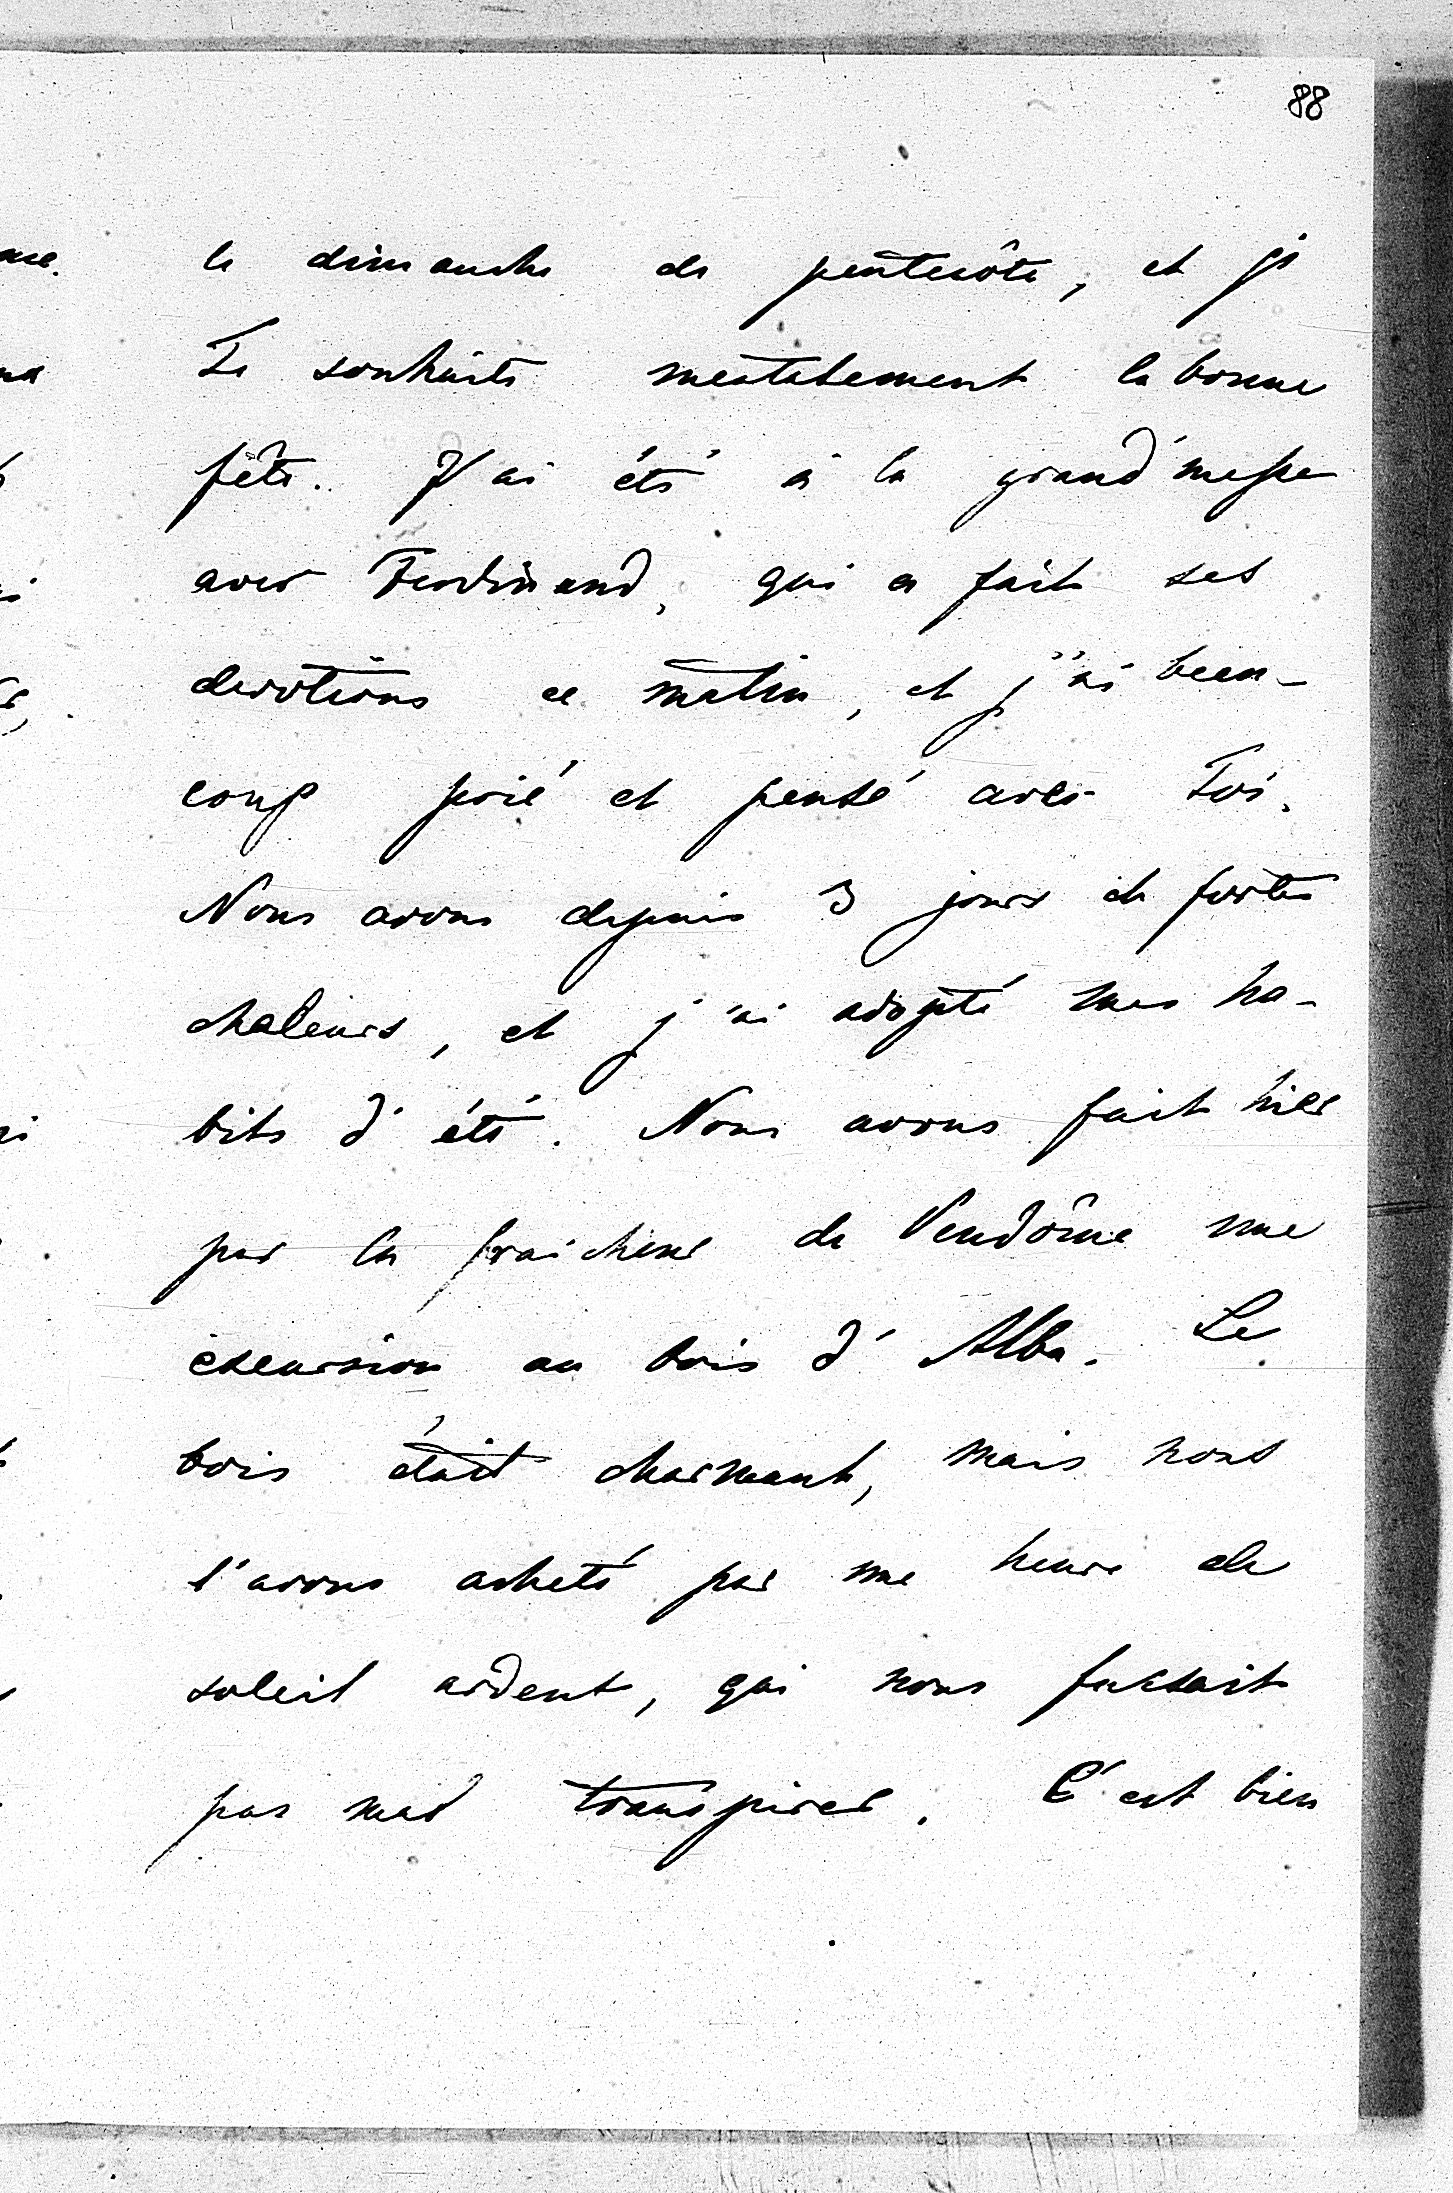 88
le dimanche de pentecôte, et je
Te souhaite mentalement la bonne
fête. J'ai été à la grand'messe
avec Ferdinand, qui a fait ses
devotions ce matin, et j'ai beau-
coup prié et pensé avec Toi.
Nous avons depuis 3 jours de fortes
chaleurs, et j'ai adopté mes ha-
bits d'été. Nous avons fait hier
par la fraicheur de Vendôme une
excursion au bois d'Alba. Le
bois était charmant, mais nous
l'avons acheté par une heure de
soleil ardent, qui nous faisait
pas mal transpirer. C'est bien